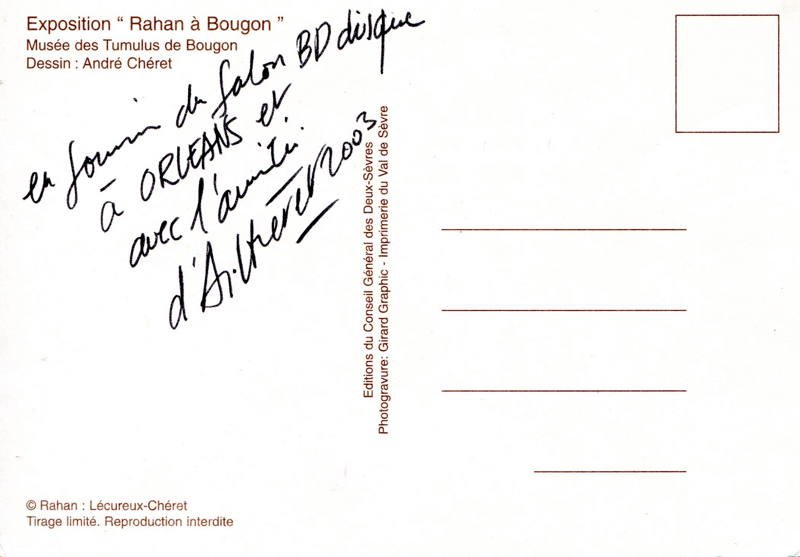 Exposition “ Rahan à Bougon ”
Musée des Tumulus de Bougon
Dessin : André Chéret
en souvenir du Salon BD disque
à ORLEANS et
avec l'amitié
d'A. Chéret 2003
Editions du Conseil Général des Deux-Sèvres
Photogravure: Girard Graphic - Imprimerie du Val de Sèvre
© Rahan : Lécureux-Chéret
Tirage limité. Reproduction interdite